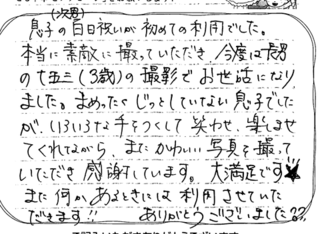 (次男)
息子の百日祝いが初めての利用でした。
本当に素敵に撮っていただき、今度は長男
の七五三(3歳)の撮影でお世話になり
ました。まったくじっとしていない息子でした
が、いろいろな手をつくして笑わせ、楽しませ
てくれながら、またかわいい写真を撮って
いただき感謝しています。大満足です★
また何かあるときには利用させていた
だきます!! ありがとうございました??